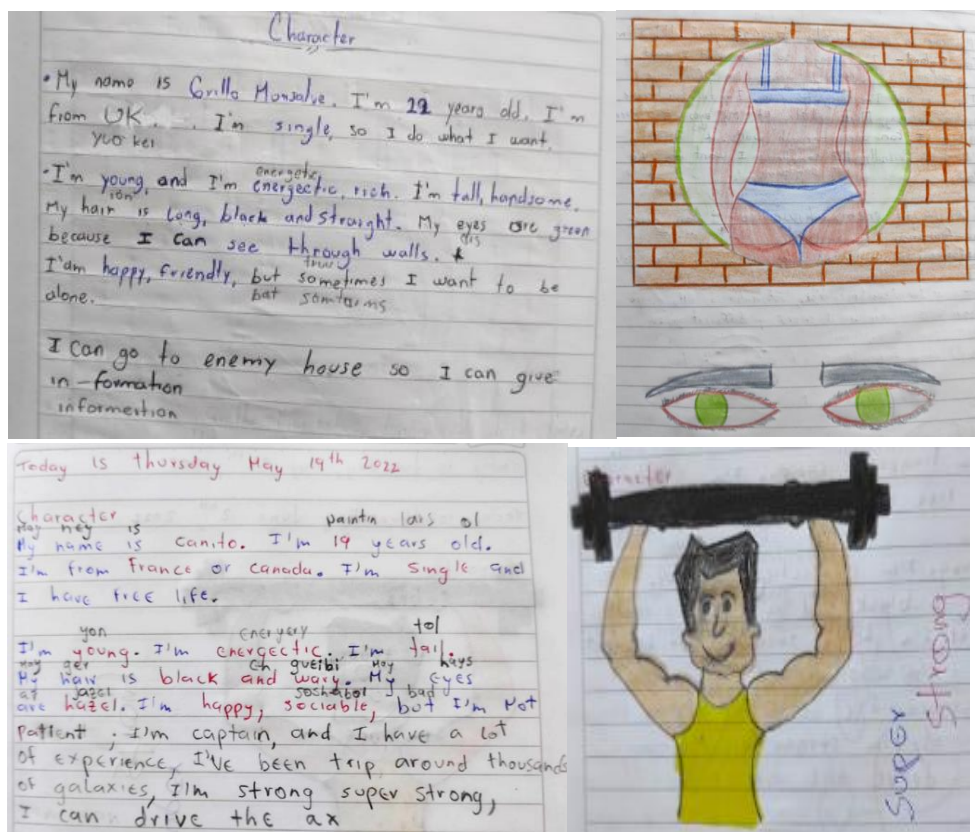 Character
• My name is Grillo Monsalve. I'm 22 years old. I'm
from UK. I'm single, so I do what I want.
yuo kei
• I'm young, and I'm energectic, rich. I'm tall, handsome.
energetic
My hair is long, black and straight. My eyes are green
ion
because I can see through walls.
ais
I'am happy, friendly, but sometimes I want to be
truu
alone.
bat somtaims
I can go to enemy house so I can give
in-formation
informeition
Today is Thursday May 19th 2022
Character
may ney is
My name is canito. I'm 19 years old.
I'm from France or canada. I'm single and
I have free life.
yon
tol
I'm young. I'm energectic. I'm tall.
My hair is black and wavy. My eyes
are hazel. I'm happy, sociable, but I'm not
jazel
bad
patient, I'm captain, and I have a lot
of experience, I've been trip around thousands
of galaxies, I'm strong super strong,
I can drive the ax
Character
super
strong